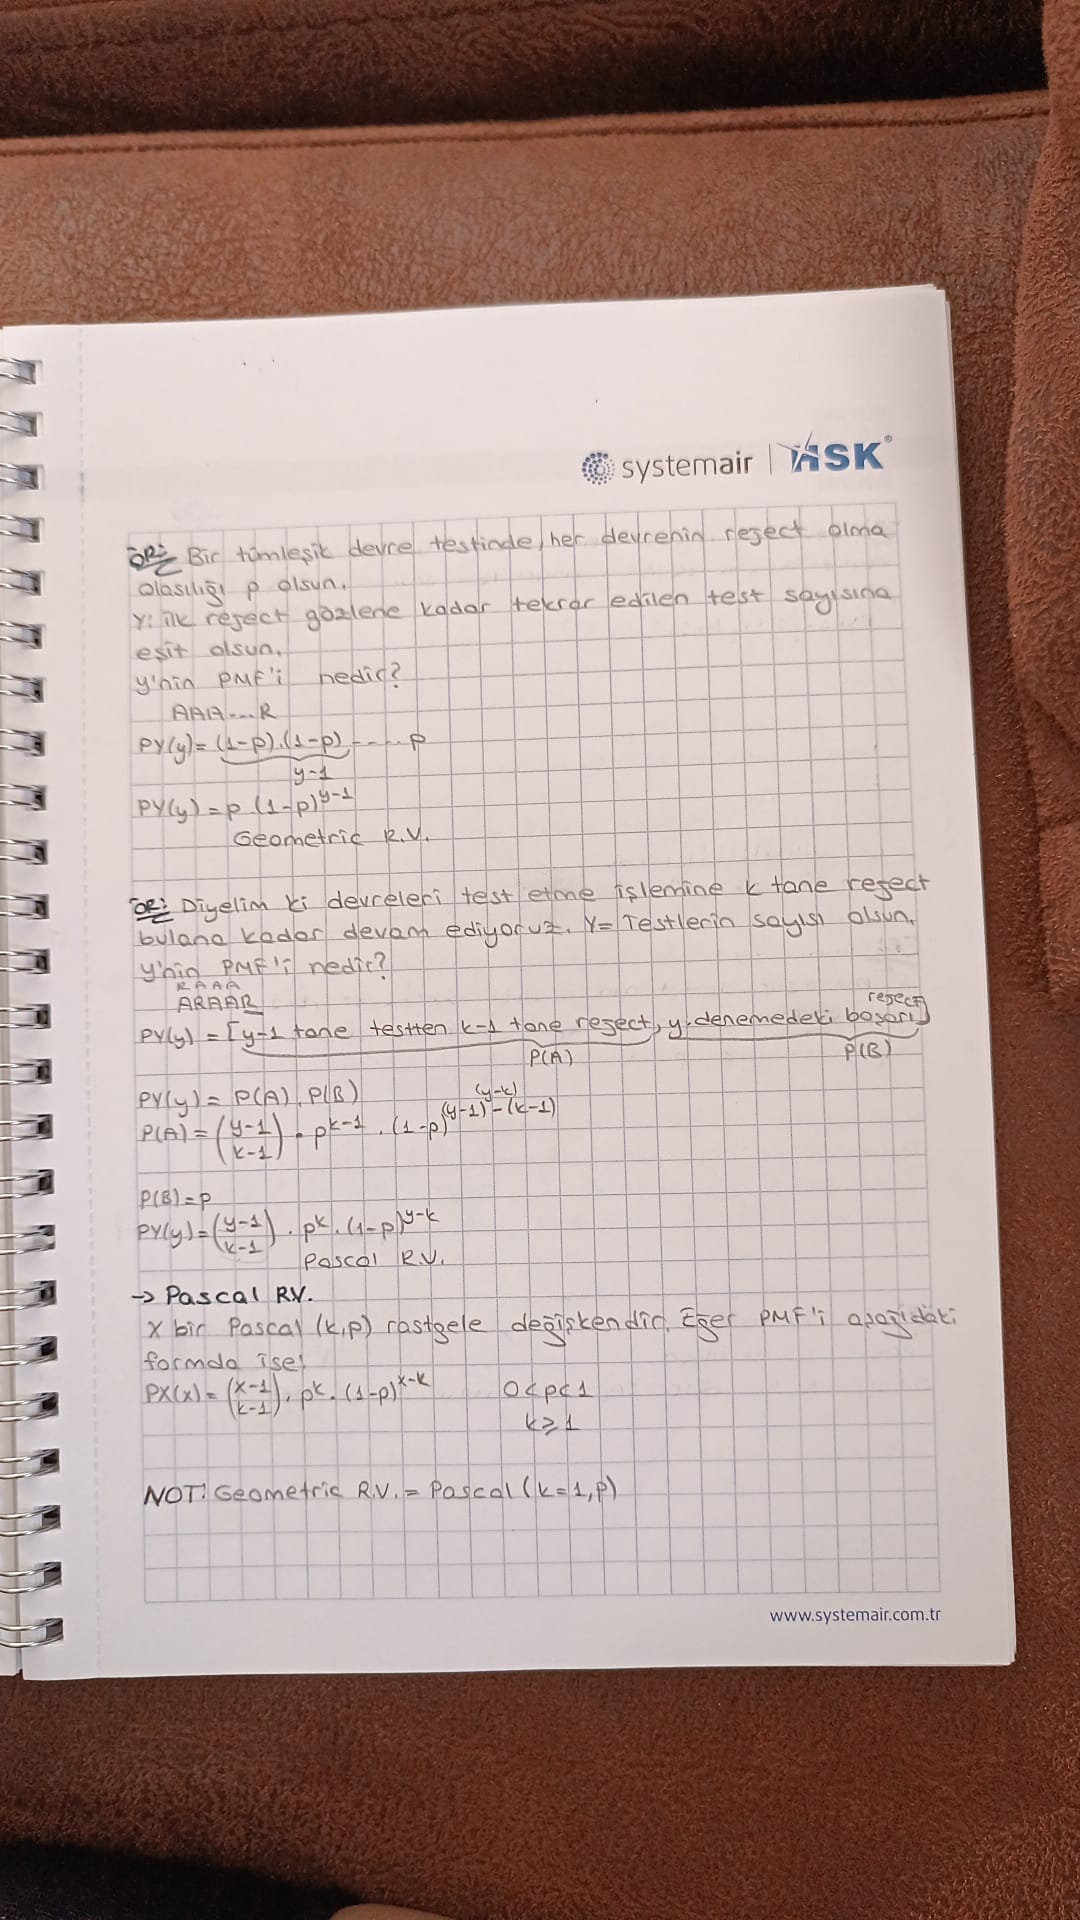 systemair | HSK®
ÖR: Bir tümleşik devre testinde, her devrenin reject olma
olasılığı p olsun.
Y: ilk reject gözlene kadar tekrar edilen test sayısına
eşit olsun.
y'nin PMF'i nedir?
AAA....R
PY(y)= (1-p).(1-p).....p
y-1
PY(y)=p (1-p)^y-1
Geometric R.V.
ÖR: Diyelim ki devreleri test etme işlemine k tane reject
bulana kadar devam ediyoruz. Y= Testlerin sayısı olsun.
y'nin PMF'i nedir?
RAAA
ARAAR
reject
PY(y) = [y-1 tane testten k-1 tane reject, y. denemedeki başarı]
P(A) P(B)
PY(y)= P(A).P(B)
(y-k)
P(A)= (y-1 / k-1) . p^k-1 . (1-p)^(y-1)-(k-1)
P(B)=p
PY(y)=(y-1 / k-1) . p^k . (1-p)^y-k
Pascal R.V.
→ Pascal RV.
X bir Pascal (k,p) rastgele değişkendir. Eğer PMF'i aşağıdaki
formda ise;
PX(x)= (x-1 / k-1) . p^k . (1-p)^x-k 0<p<1
k≥1
NOT: Geometric R.V. = Pascal (k=1,p)
www.systemair.com.tr